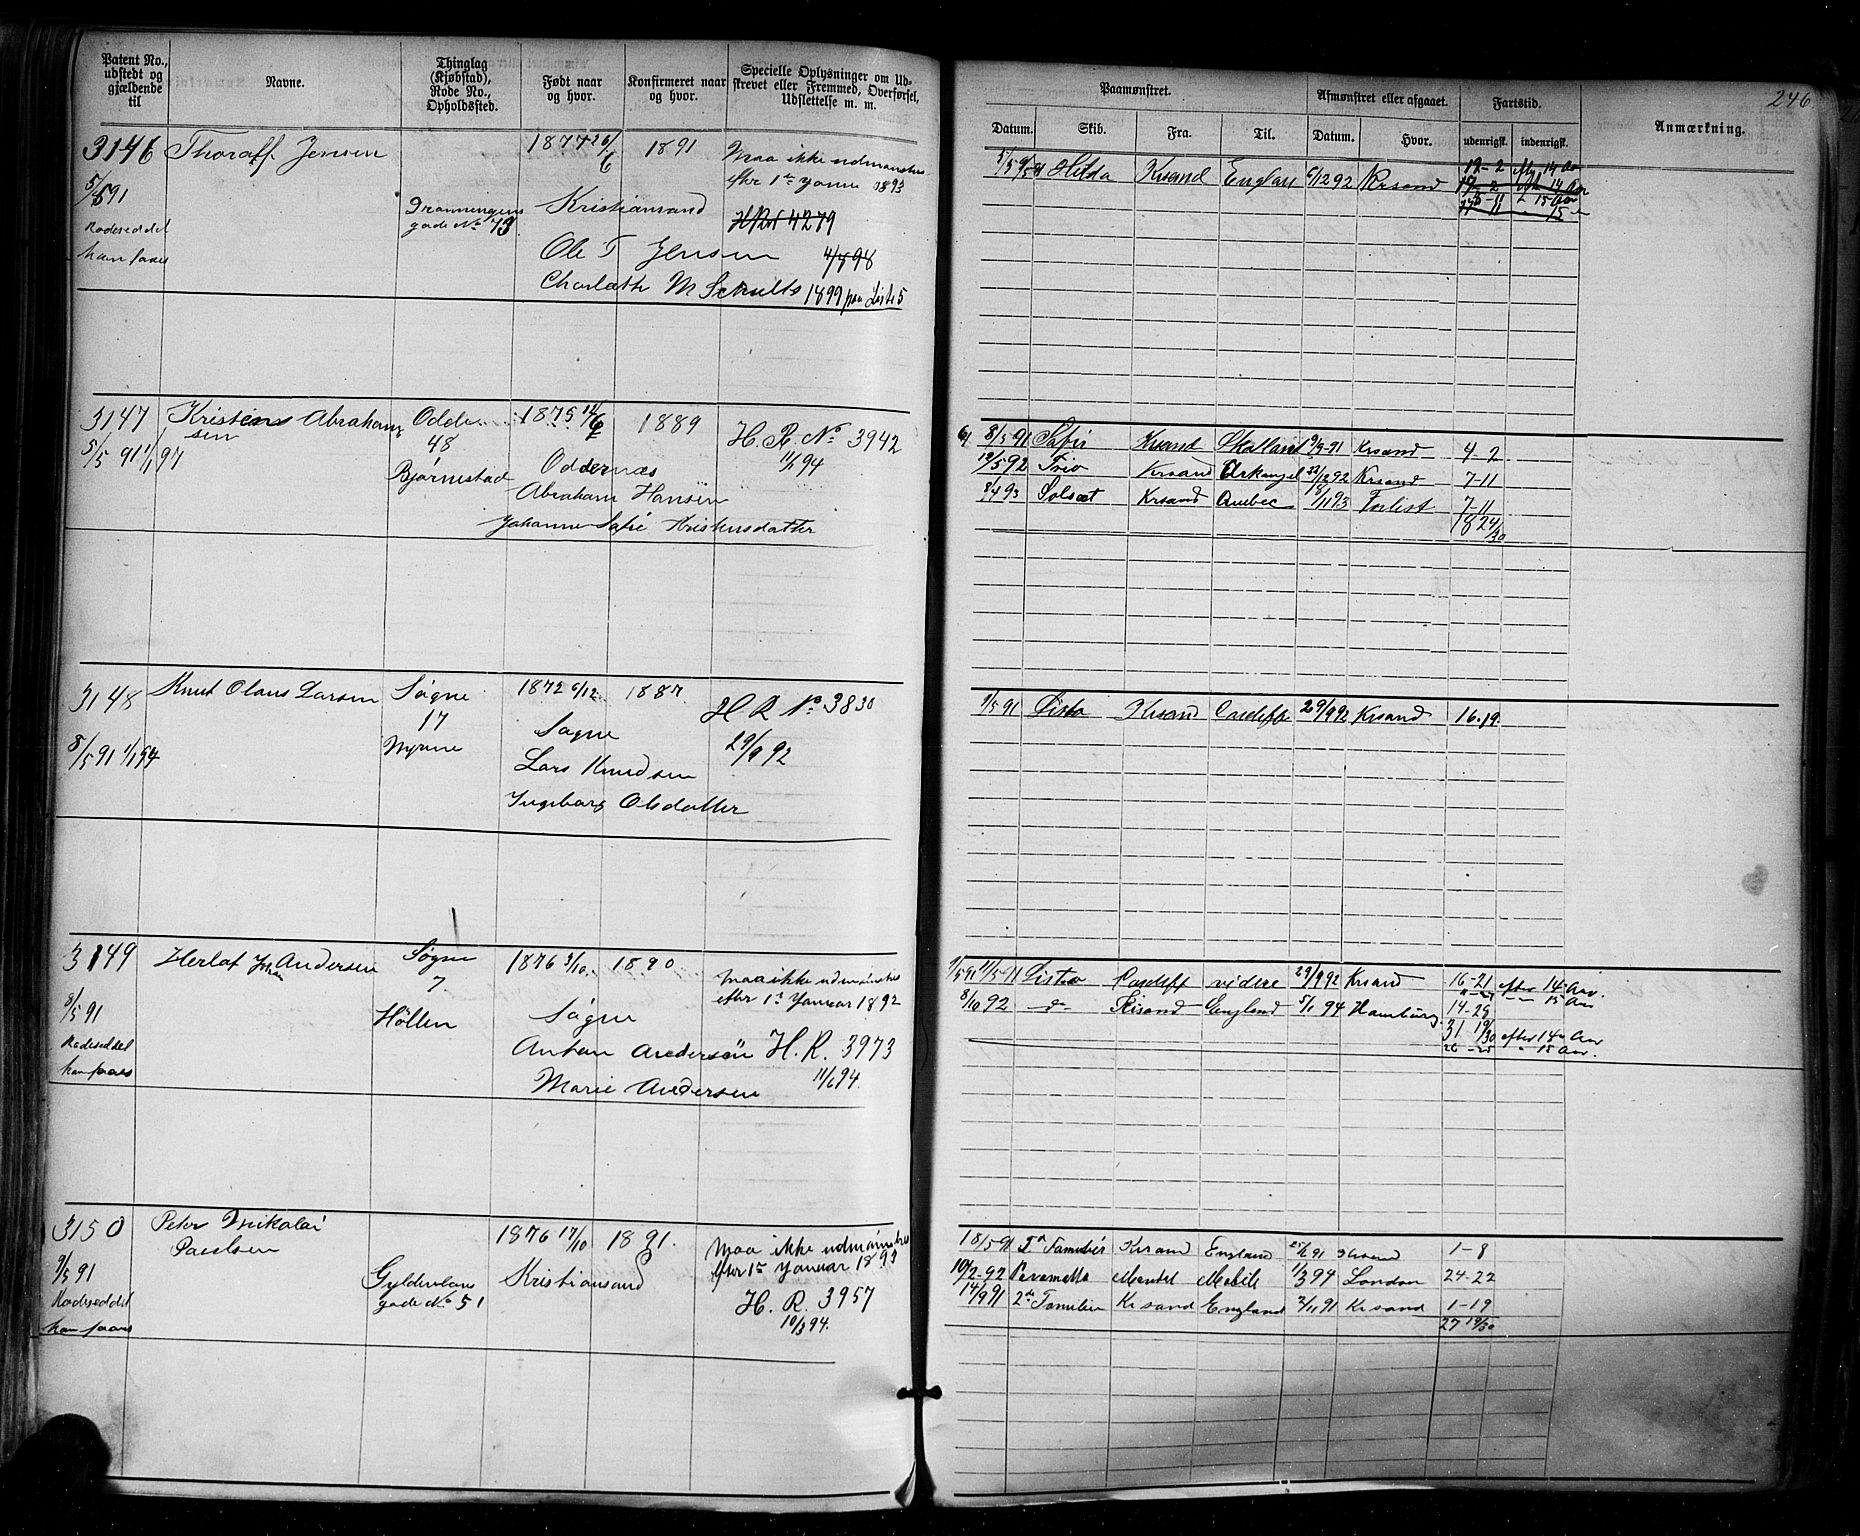 Patent No., udstedt og gjældende til
Navne.
Thinglag (Kjøbstad), Rode No., Opholdssted.
Født naar og hvor.
Konfirmeret naar og hvor.
Specielle Oplysninger om Udskrevet eller Fremmed, Overførsel, Udslettelse m. m.
Paamønstret.
Afmønstret eller afgaaet.
Fartstid.
Anmærkning.
246
Datum.
Skib.
Fra.
Til.
Datum.
Hvor.
udenrigst.
indenrigst.
3146
5/5 91
Rodeseddel
kan faaes
Thoralf Jensen
Dronningens
gade No 73
1877 26/6
1891
Kristiansand
Ole T Jensen
Charlotte M Schults
Maa ikke udmønstres
efter 1ste Januar 1893
H R No 4279
4/5 98
1899 paa Liste 5
Hilda Krsand England 6/12 92 Krsand
12-2 efter 14 Aar
3147
5/5 91 1/1 97
Kristen Abraham
sen
Odder
48
Bjørnestad
1875 14/6
1889
Oddernæs
Abraham Hansen
Johanne Sofie Kristensdatter
H. R. No 3942
11/1 94
8/5 91 Safir Krsand Skotland 9/9 91 Krsand 4-2
12/5 92 Trio Krsand Arkangel 22/12 92 Krsand 7-11
8/4 93 Solsæt Krsand Quebec 18/11 93 Forlist 7-11
18 24/30
3148
8/5 91 1/1 94
Knut Olaus Larsen
Søgne
17
1872 6/12
1887
Søgne
Lars Knudsen
Ingeborg Olsdatter
H R No 3830
29/9 92
9/5 91 Lista Krsand Cardiff 29/9 92 Krsand 16.19
3149
8/5 91
Rodeseddel
kan faaes
Herlof Johan Andersen
Søgne
7
Høllen
1876 3/10
1890
Søgne
Anton Andersen
Marie Andersen
Maa ikke udmønstres
efter 1ste Januar 1892
H. R. 3973
11/6 94.
9/5 91 11/5 91 Lista Cardiff videre 29/9 92 Krsand 16-21 efter 14 Aar.
15 Aar
8/10 92 -"- Krsand England 5/1 94 Hamburg 14-28
31 19/30 efter 14 Aar
26-25 " 15 Aar.
3150
9/5 91
Rodeseddel
kan faaes
Peter Nikolai
Paulsen
Gyldenløves
gade No 51
1876 17/10
1891.
Kristiansand
Maa ikke udmønstres
efter 1ste Januar 1893
H. R. 3957
10/3 94.
18/5 91 Familie Krsand England Krsand 1-8
10/2-92 Paramatta Mandal Mobile 1/3 94 London 24-22
14/9 91 2de Familie Krsand England 2/11 91 Krsand 1-19
27 19/30